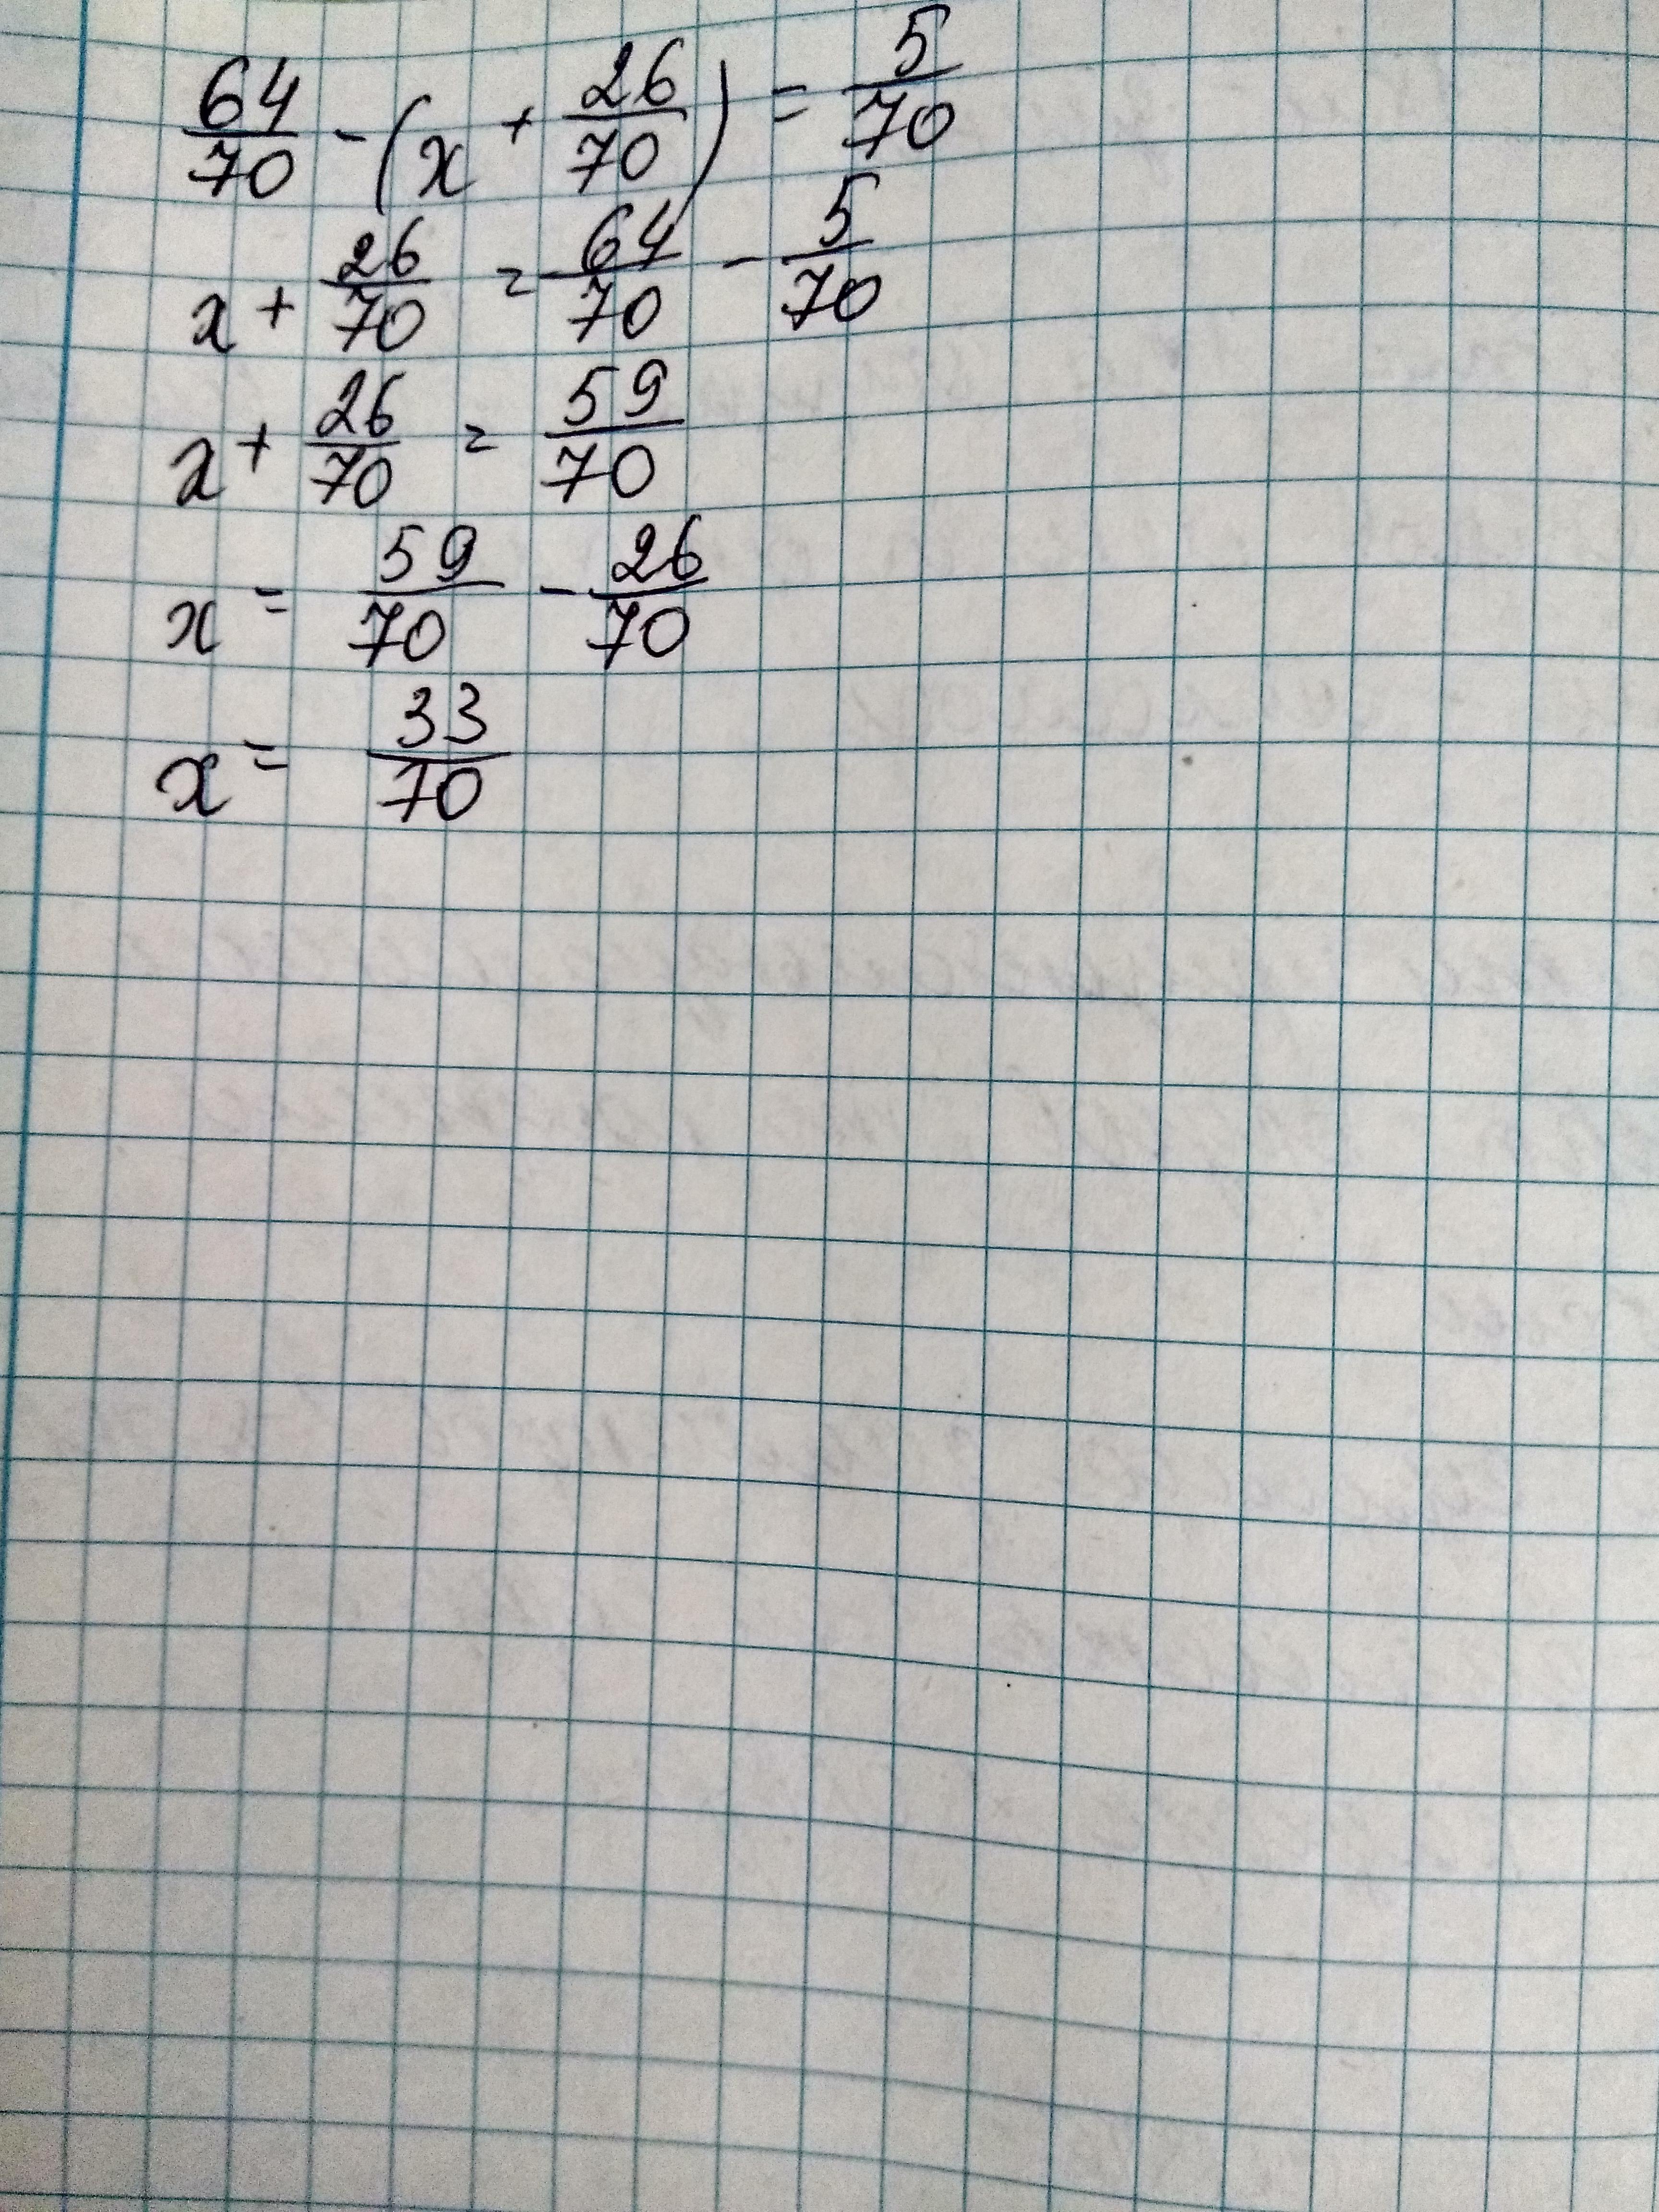 64/70 - (x + 26/70) = 5/70
x + 26/70 = 64/70 - 5/70
x + 26/70 = 59/70
x = 59/70 - 26/70
x = 33/70